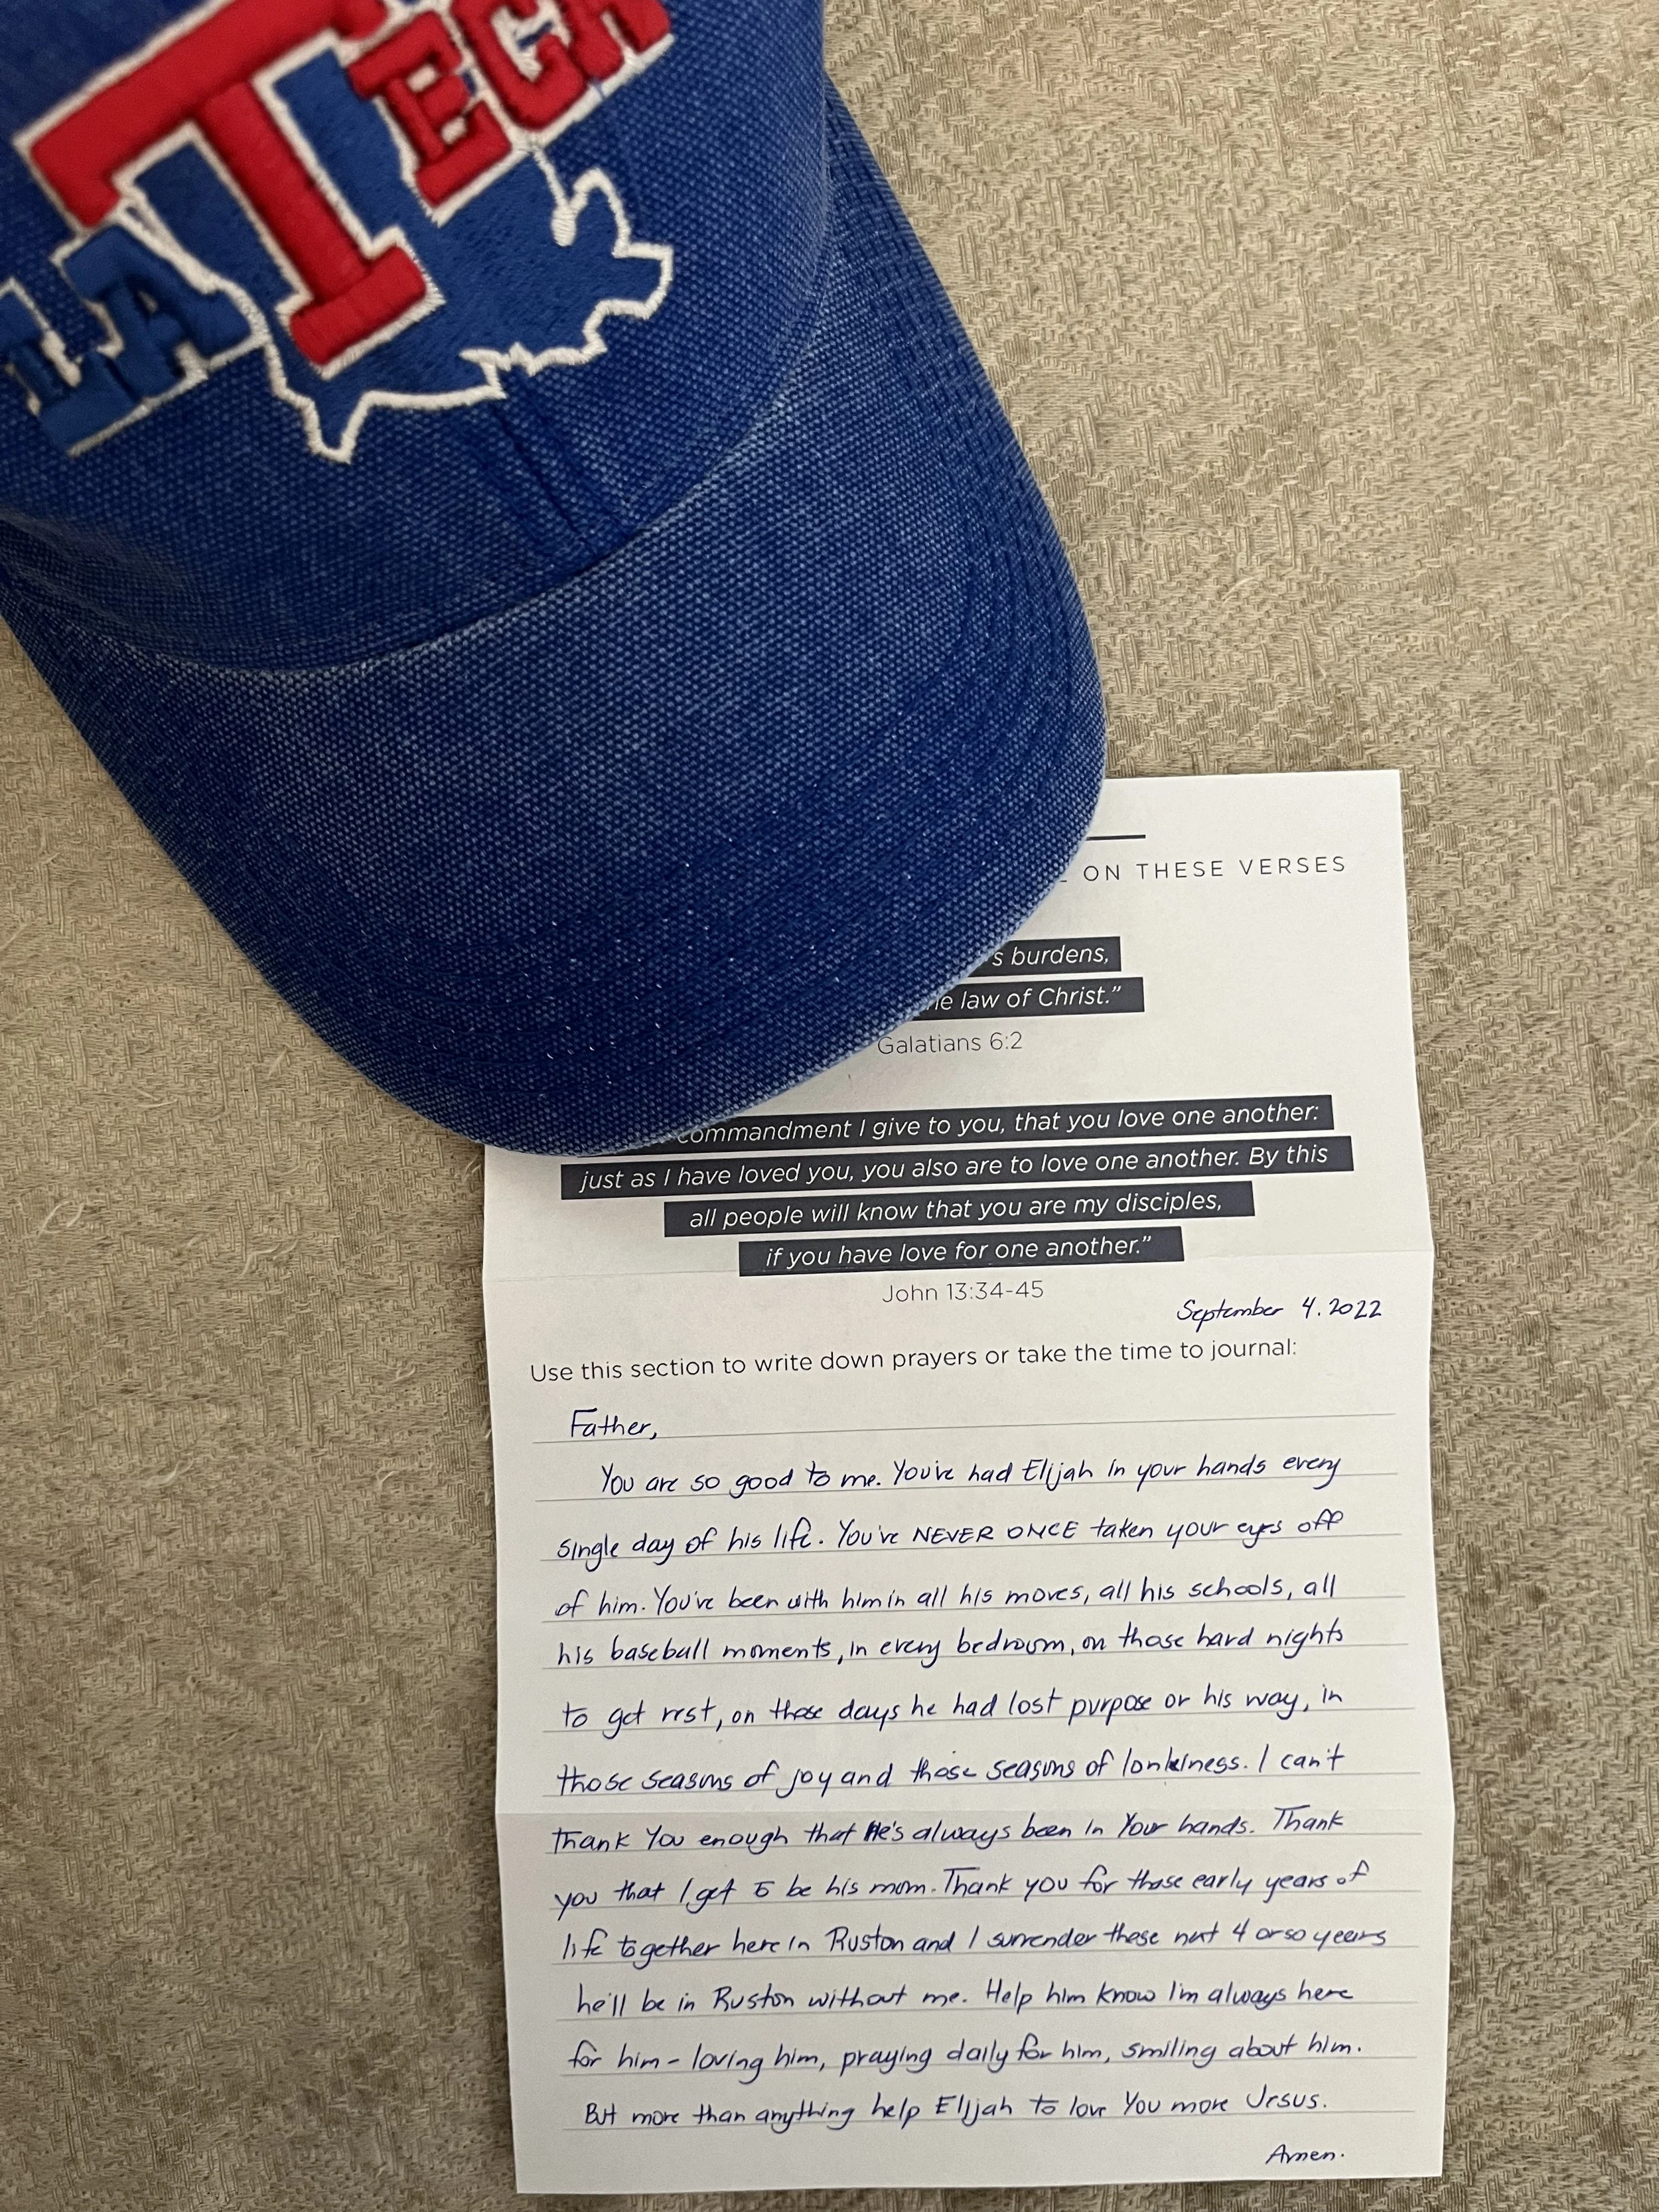 LA TECH
ON THESE VERSES
s burdens,
he law of Christ.”
Galatians 6:2
commandment I give to you, that you love one another:
just as I have loved you, you also are to love one another. By this
all people will know that you are my disciples,
if you have love for one another.”
John 13:34-45
September 4. 2022
Use this section to write down prayers or take the time to journal:
Father,
You are so good to me. You've had Elijah in your hands every
single day of his life. You've NEVER ONCE taken your eyes off
of him. You've been with him in all his moves, all his schools, all
his baseball moments, in every bedroom, on those hard nights
to get rest, on those days he had lost purpose or his way, in
those seasons of joy and those seasons of lonliness. I can't
thank You enough that He's always been in Your hands. Thank
you that I get to be his mom. Thank you for those early years of
life together here in Ruston and I surrender these next 4 or so years
he'll be in Ruston without me. Help him know I'm always here
for him - loving him, praying daily for him, smiling about him.
But more than anything help Elijah to love You more Jesus.
Amen.